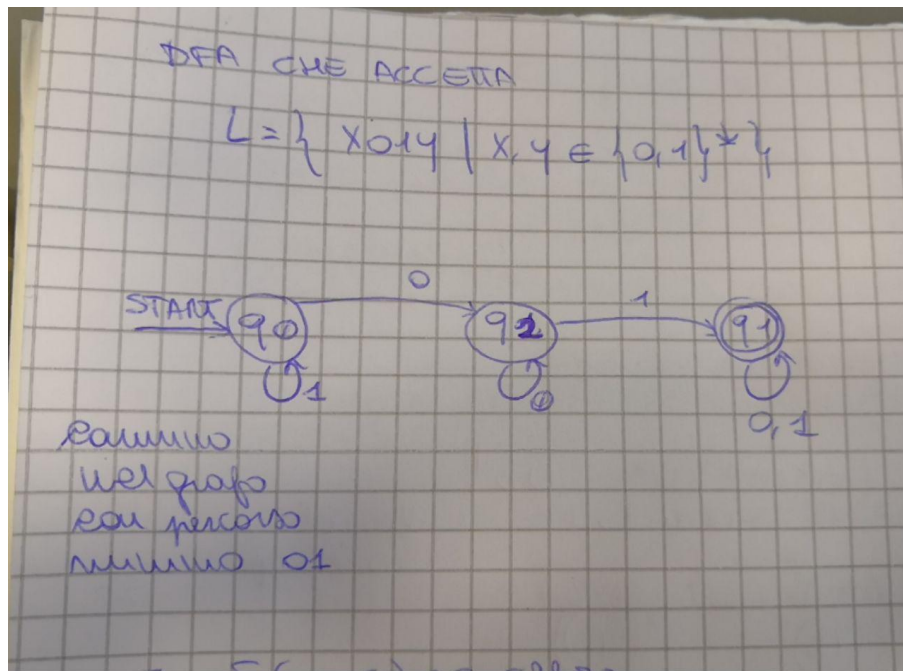 DFA CHE ACCETTA
L = { x01y | x, y ∈ {0,1}* }
0
START q0 q2 1 q1
1 0 0,1
cammino
nel grafo
con percorso
minimo 01